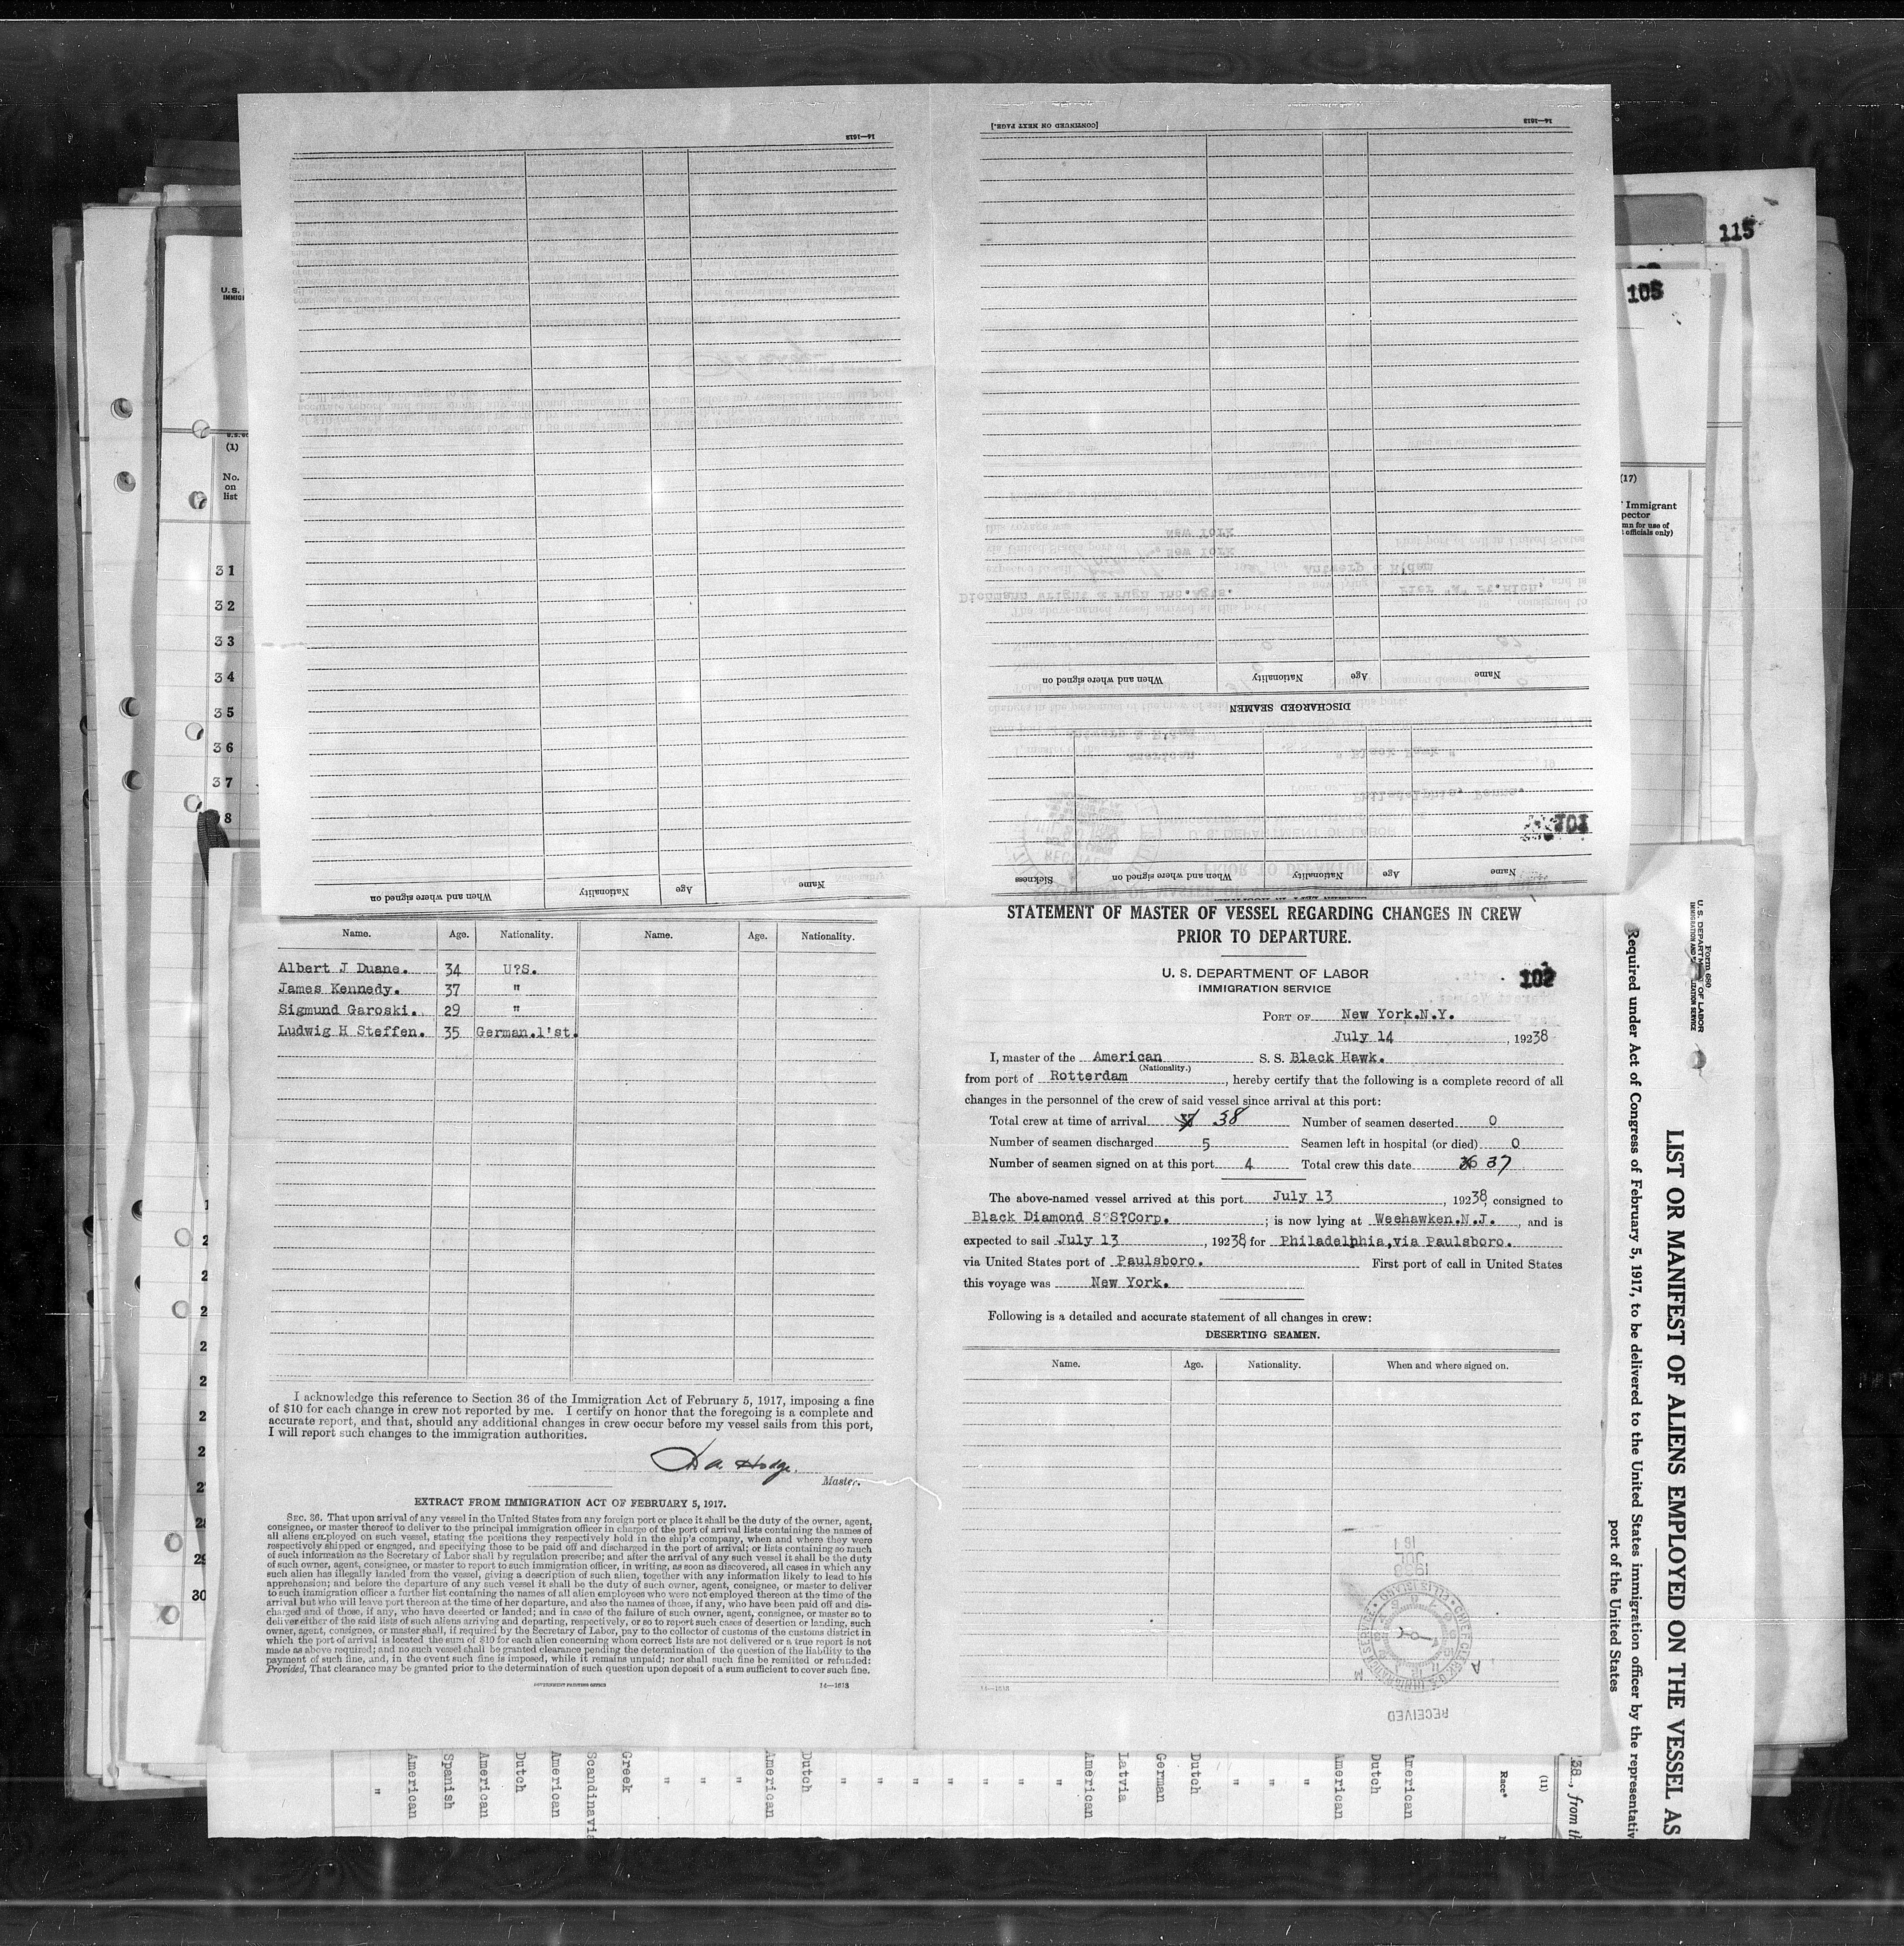 14—1613
[CONTINUED ON NEXT PAGE.]
14—1613
When and where signed on
Nationality
Age
Name
DISCHARGED SEAMEN
When and where signed on
Nationality
Age
Name
Sickness
When and where signed on
Nationality
Age
Name
101
115
105
U. S.
(1)
No.
on
list
31
32
33
34
35
36
37
8
(17)
Immigrant
pector
mn for use of
officials only)
Name. Age. Nationality. Name. Age. Nationality.
Albert J Duane. 34 U?S.
James Kennedy. 37 "
Sigmund Garoski. 29 "
Ludwig H Steffen. 35 German.1'st.
I acknowledge this reference to Section 36 of the Immigration Act of February 5, 1917, imposing a fine
of $10 for each change in crew not reported by me. I certify on honor that the foregoing is a complete and
accurate report, and that, should any additional changes in crew occur before my vessel sails from this port,
I will report such changes to the immigration authorities.
Hodge.
Master.
EXTRACT FROM IMMIGRATION ACT OF FEBRUARY 5, 1917.
SEC. 36. That upon arrival of any vessel in the United States from any foreign port or place it shall be the duty of the owner, agent,
consignee, or master thereof to deliver to the principal immigration officer in charge of the port of arrival lists containing the names of
all aliens employed on such vessel, stating the positions they respectively hold in the ship's company, when and where they were
respectively shipped or engaged, and specifying those to be paid off and discharged in the port of arrival; or lists containing so much
of such information as the Secretary of Labor shall by regulation prescribe; and after the arrival of any such vessel it shall be the duty
of such owner, agent, consignee, or master to report to such immigration officer, in writing, as soon as discovered, all cases in which any
such alien has illegally landed from the vessel, giving a description of such alien, together with any information likely to lead to his
apprehension; and before the departure of any such vessel it shall be the duty of such owner, agent, consignee, or master to deliver
to such immigration officer a further list containing the names of all alien employees who were not employed thereon at the time of the
arrival but who will leave port thereon at the time of her departure, and also the names of those, if any, who have been paid off and dis-
charged and of those, if any, who have deserted or landed; and in case of the failure of such owner, agent, consignee, or master so to
deliver either of the said lists of such aliens arriving and departing, respectively, or so to report such cases of desertion or landing, such
owner, agent, consignee, or master shall, if required by the Secretary of Labor, pay to the collector of customs of the customs district in
which the port of arrival is located the sum of $10 for each alien concerning whom correct lists are not delivered or a true report is not
made as above required; and no such vessel shall be granted clearance pending the determination of the question of the liability to the
payment of such fine, and, in the event such fine is imposed, while it remains unpaid; nor shall such fine be remitted or refunded:
Provided, That clearance may be granted prior to the determination of such question upon deposit of a sum sufficient to cover such fine.
GOVERNMENT PRINTING OFFICE 14—1613
STATEMENT OF MASTER OF VESSEL REGARDING CHANGES IN CREW
PRIOR TO DEPARTURE.
U. S. DEPARTMENT OF LABOR
IMMIGRATION SERVICE
102
PORT OF New York.N.Y.
July 14, 1938
I, master of the American S. S. Black Hawk.
(Nationality.)
from port of Rotterdam, hereby certify that the following is a complete record of all
changes in the personnel of the crew of said vessel since arrival at this port:
Total crew at time of arrival 38 Number of seamen deserted 0
Number of seamen discharged 5 Seamen left in hospital (or died) 0
Number of seamen signed on at this port 4 Total crew this date 36 37
The above-named vessel arrived at this port July 13, 19238, consigned to
Black Diamond S?S?Corp. ; is now lying at Weehawken.N.J., and is
expected to sail July 13, 19238, for Philadelphia,via Paulsboro.
via United States port of Paulsboro. First port of call in United States
this voyage was New York.
Following is a detailed and accurate statement of all changes in crew:
DESERTING SEAMEN.
Name. Age. Nationality. When and where signed on.
14—1613
RECEIVED
Form 680
U. S. DEPARTMENT OF LABOR
LIST OR MANIFEST OF ALIENS EMPLOYED ON THE VESSEL AS
Required under Act of Congress of February 5, 1917, to be delivered to the United States immigration officer by the representativ
port of the United States
28
29
30
"
American
Spanish
American
Dutch
American
Scandinavia
Greek
"
"
"
American
Dutch
"
"
"
"
"
"
"
American
Latvia
German
Dutch
"
"
"
American
Dutch
American
Race*
(11)
38, from th